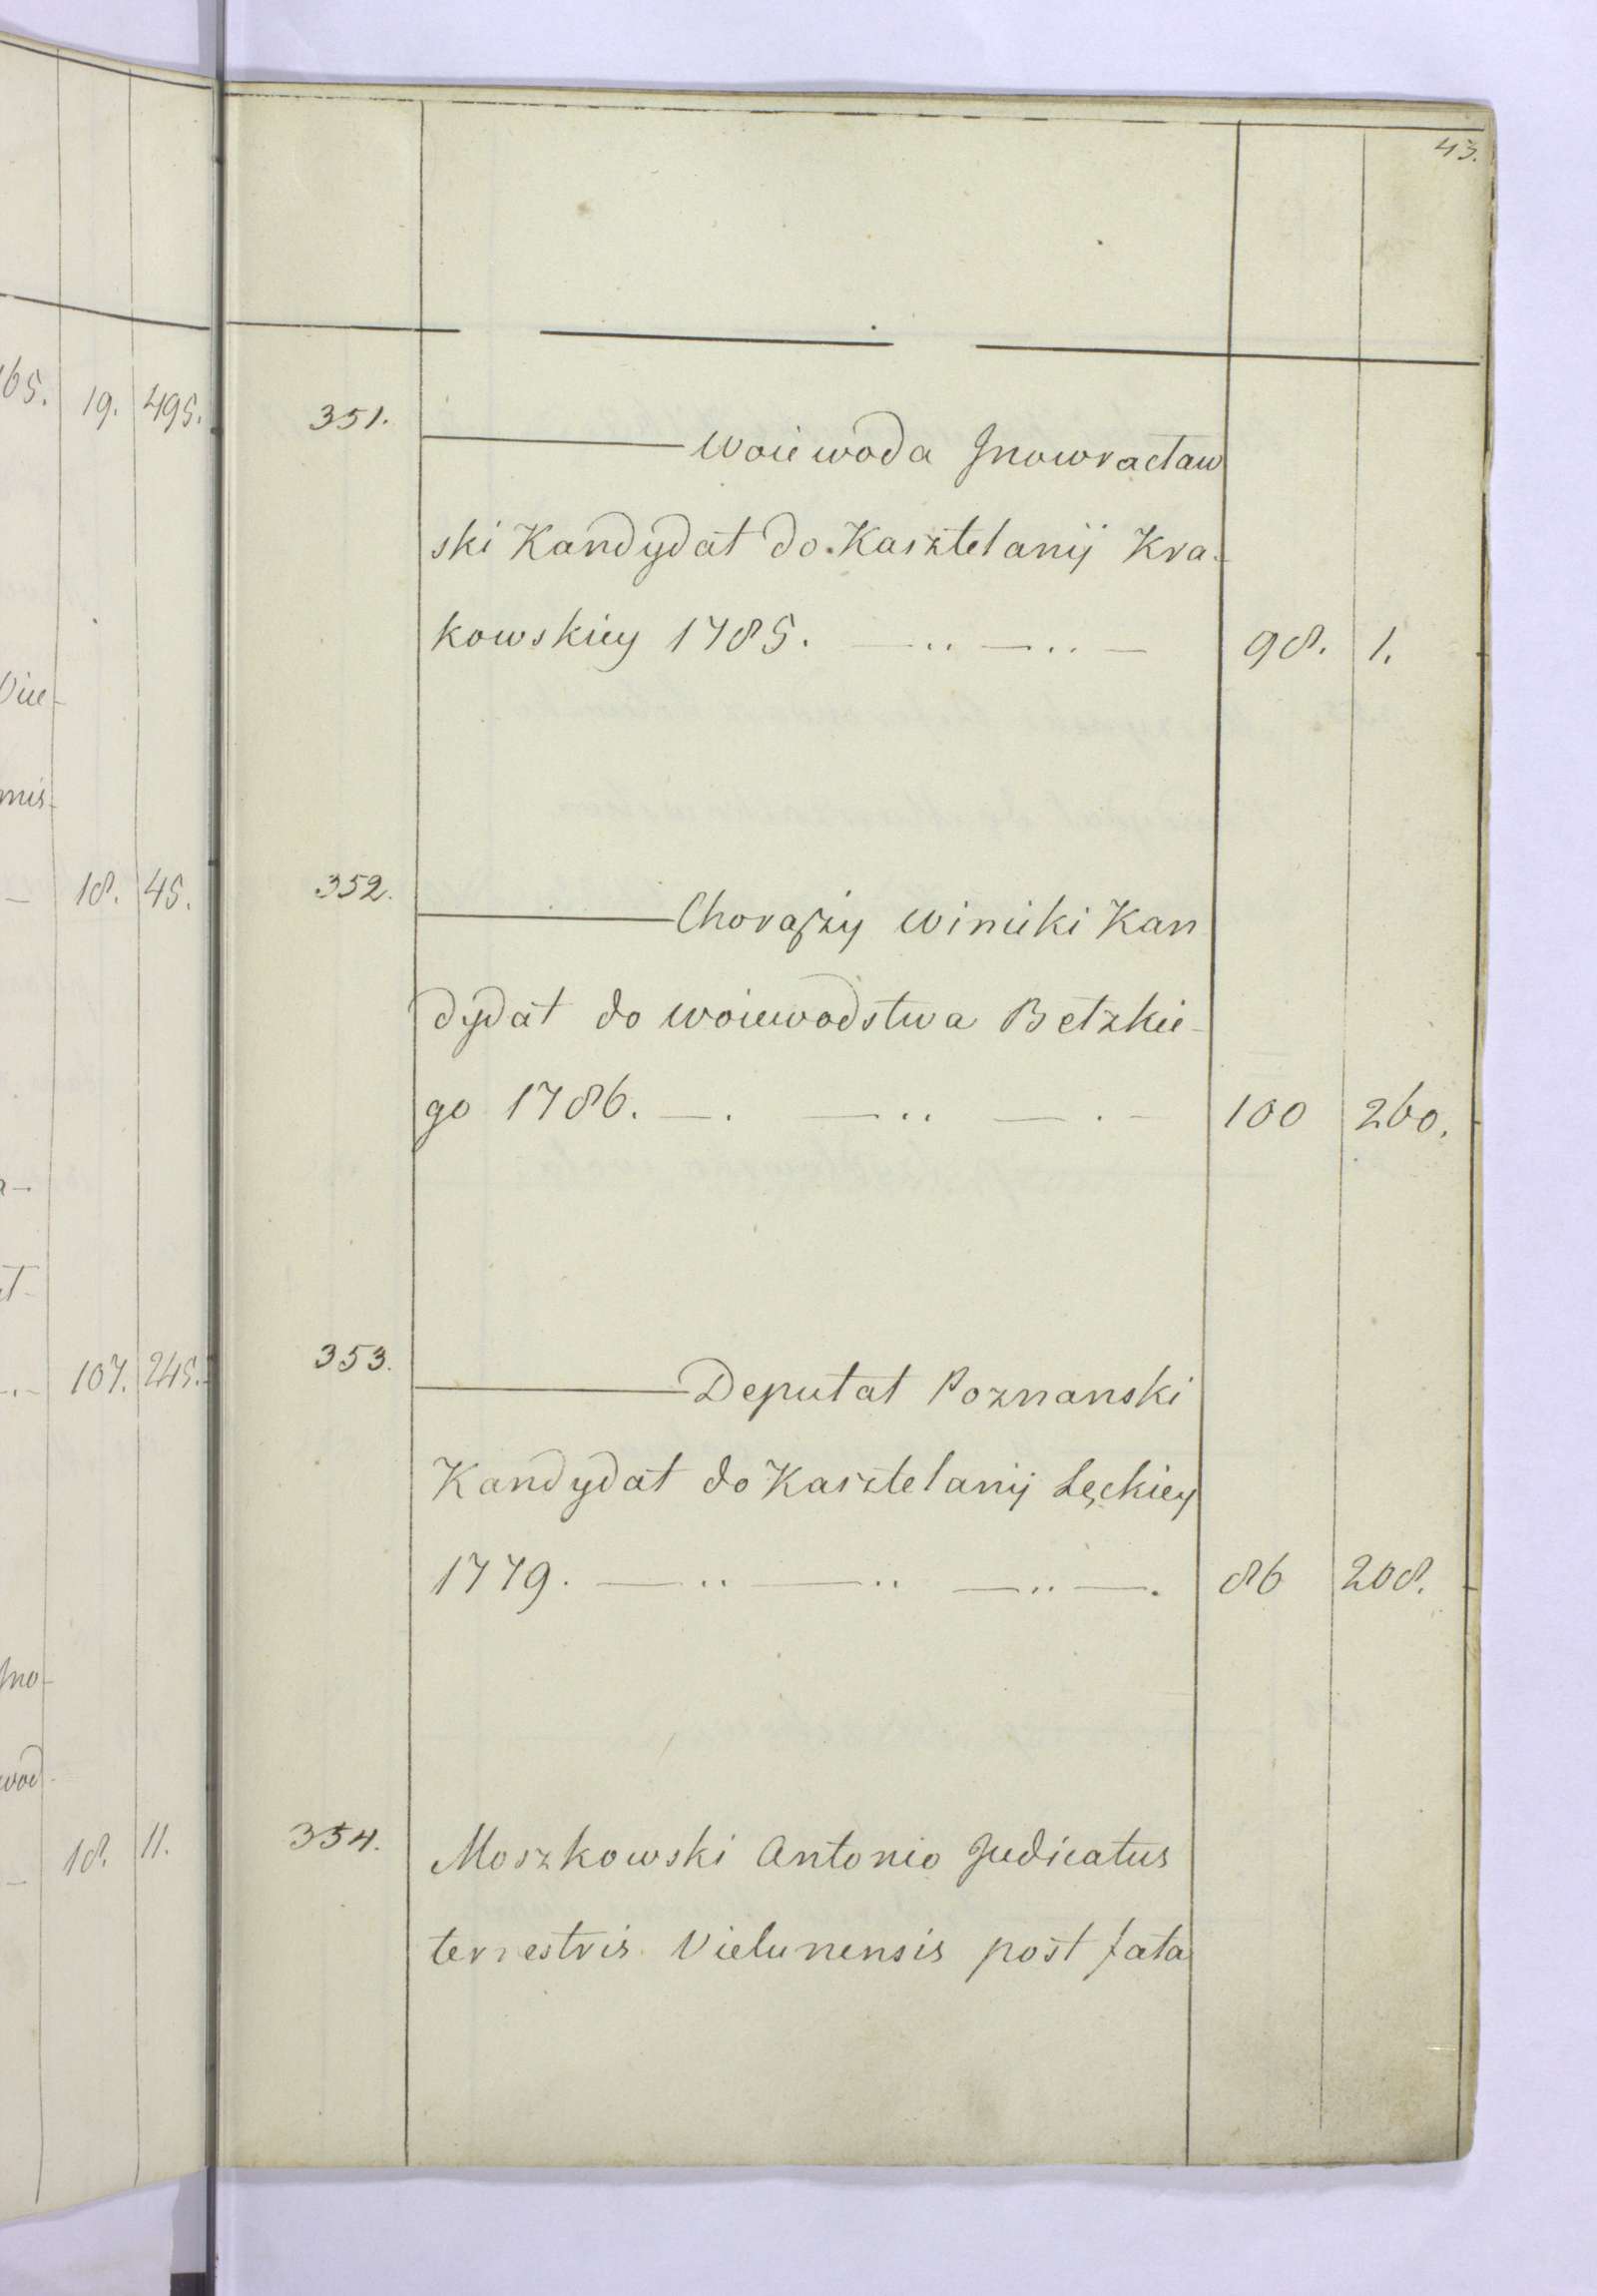 43.
165. 19. 495.
Vice-
mis-
— 18. 45.
a—
t-
107. 245.
Jno-
wod-
— 18. 11.
351. ——— Woiewoda Jnowracław
ski Kandydat do Kasztelanij Kra-
kowskiey 1785. — .. — .. — 98. 1.
352. ——— Chorąży Winicki Kan
dydat do Woiewodstwa Bełzkie-
go 1786. — . — .. — . - 100 260.
353. ——— Deputat Poznanski
Kandydat do Kasztelanij Lęckiey
1779. — .. — .. — .. — . 86 208.
354. Moszkowski Antonio Judicatus
terrestris Vielunensis post fata